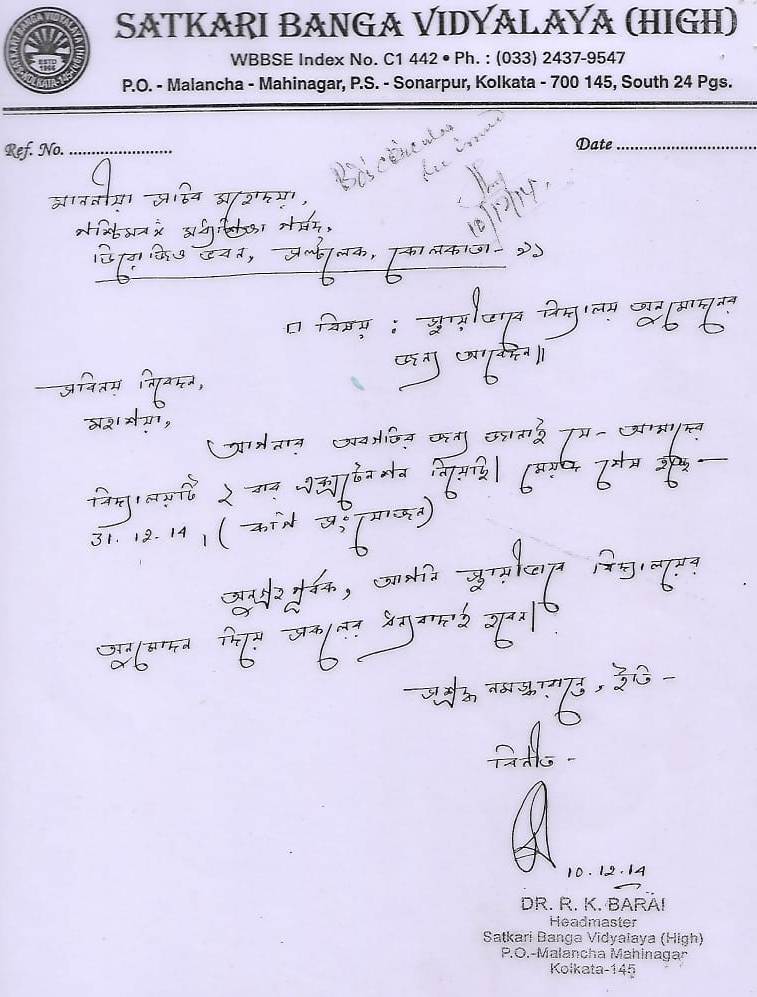 SATKARI BANGA VIDYALAYA (HIGH)
WBBSE Index No. C1 442 • Ph. : (033) 2437-9547
P.O. - Malancha - Mahinagar, P.S. - Sonarpur, Kolkata - 700 145, South 24 Pgs.
Ref. No. ......................
Date ..............................
10/12/14.
মাননীয়া সচিব মহোদয়া,
পশ্চিমবঙ্গ মধ্যশিক্ষা পর্ষদ,
ডিরোজিও ভবন, সল্টলেক, কোলকাতা - ৯১
□ বিষয় : স্থায়ীভাবে বিদ্যালয় অনুমোদনের
জন্য আবেদন॥
সবিনয় নিবেদন,
মহাশয়া,
আপনার অবগতির জন্য জানাই যে - আমাদের
বিদ্যালয়টি ২ বার এক্সটেনশন নিয়েছি। মেয়াদ শেষ হচ্ছে -
31. 12. 14 । ( কপি সংযোজন)
অনুগ্রহপূর্বক, আপনি স্থায়ীভাবে বিদ্যালয়ের
অনুমোদন দিয়ে সকলের ধন্যবাদার্হ হবেন।
সশ্রদ্ধ নমস্কারান্তে, ইতি -
বিনীত -
10.12.14
DR. R. K. BARAI
Headmaster
Satkari Banga Vidyalaya (High)
P.O.-Malancha Mahinagar
Kolkata-145